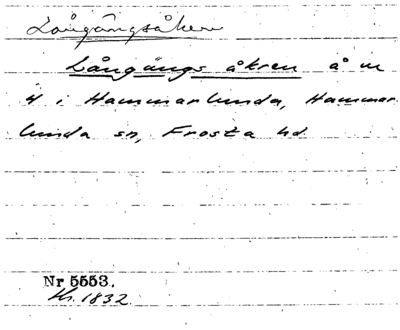 Långångsåkern
Långångs åkren å N
4 i Hammarlunda, Hammar-
lunda sn, Frosta hd
Nr 5553.
Kt. 1832.